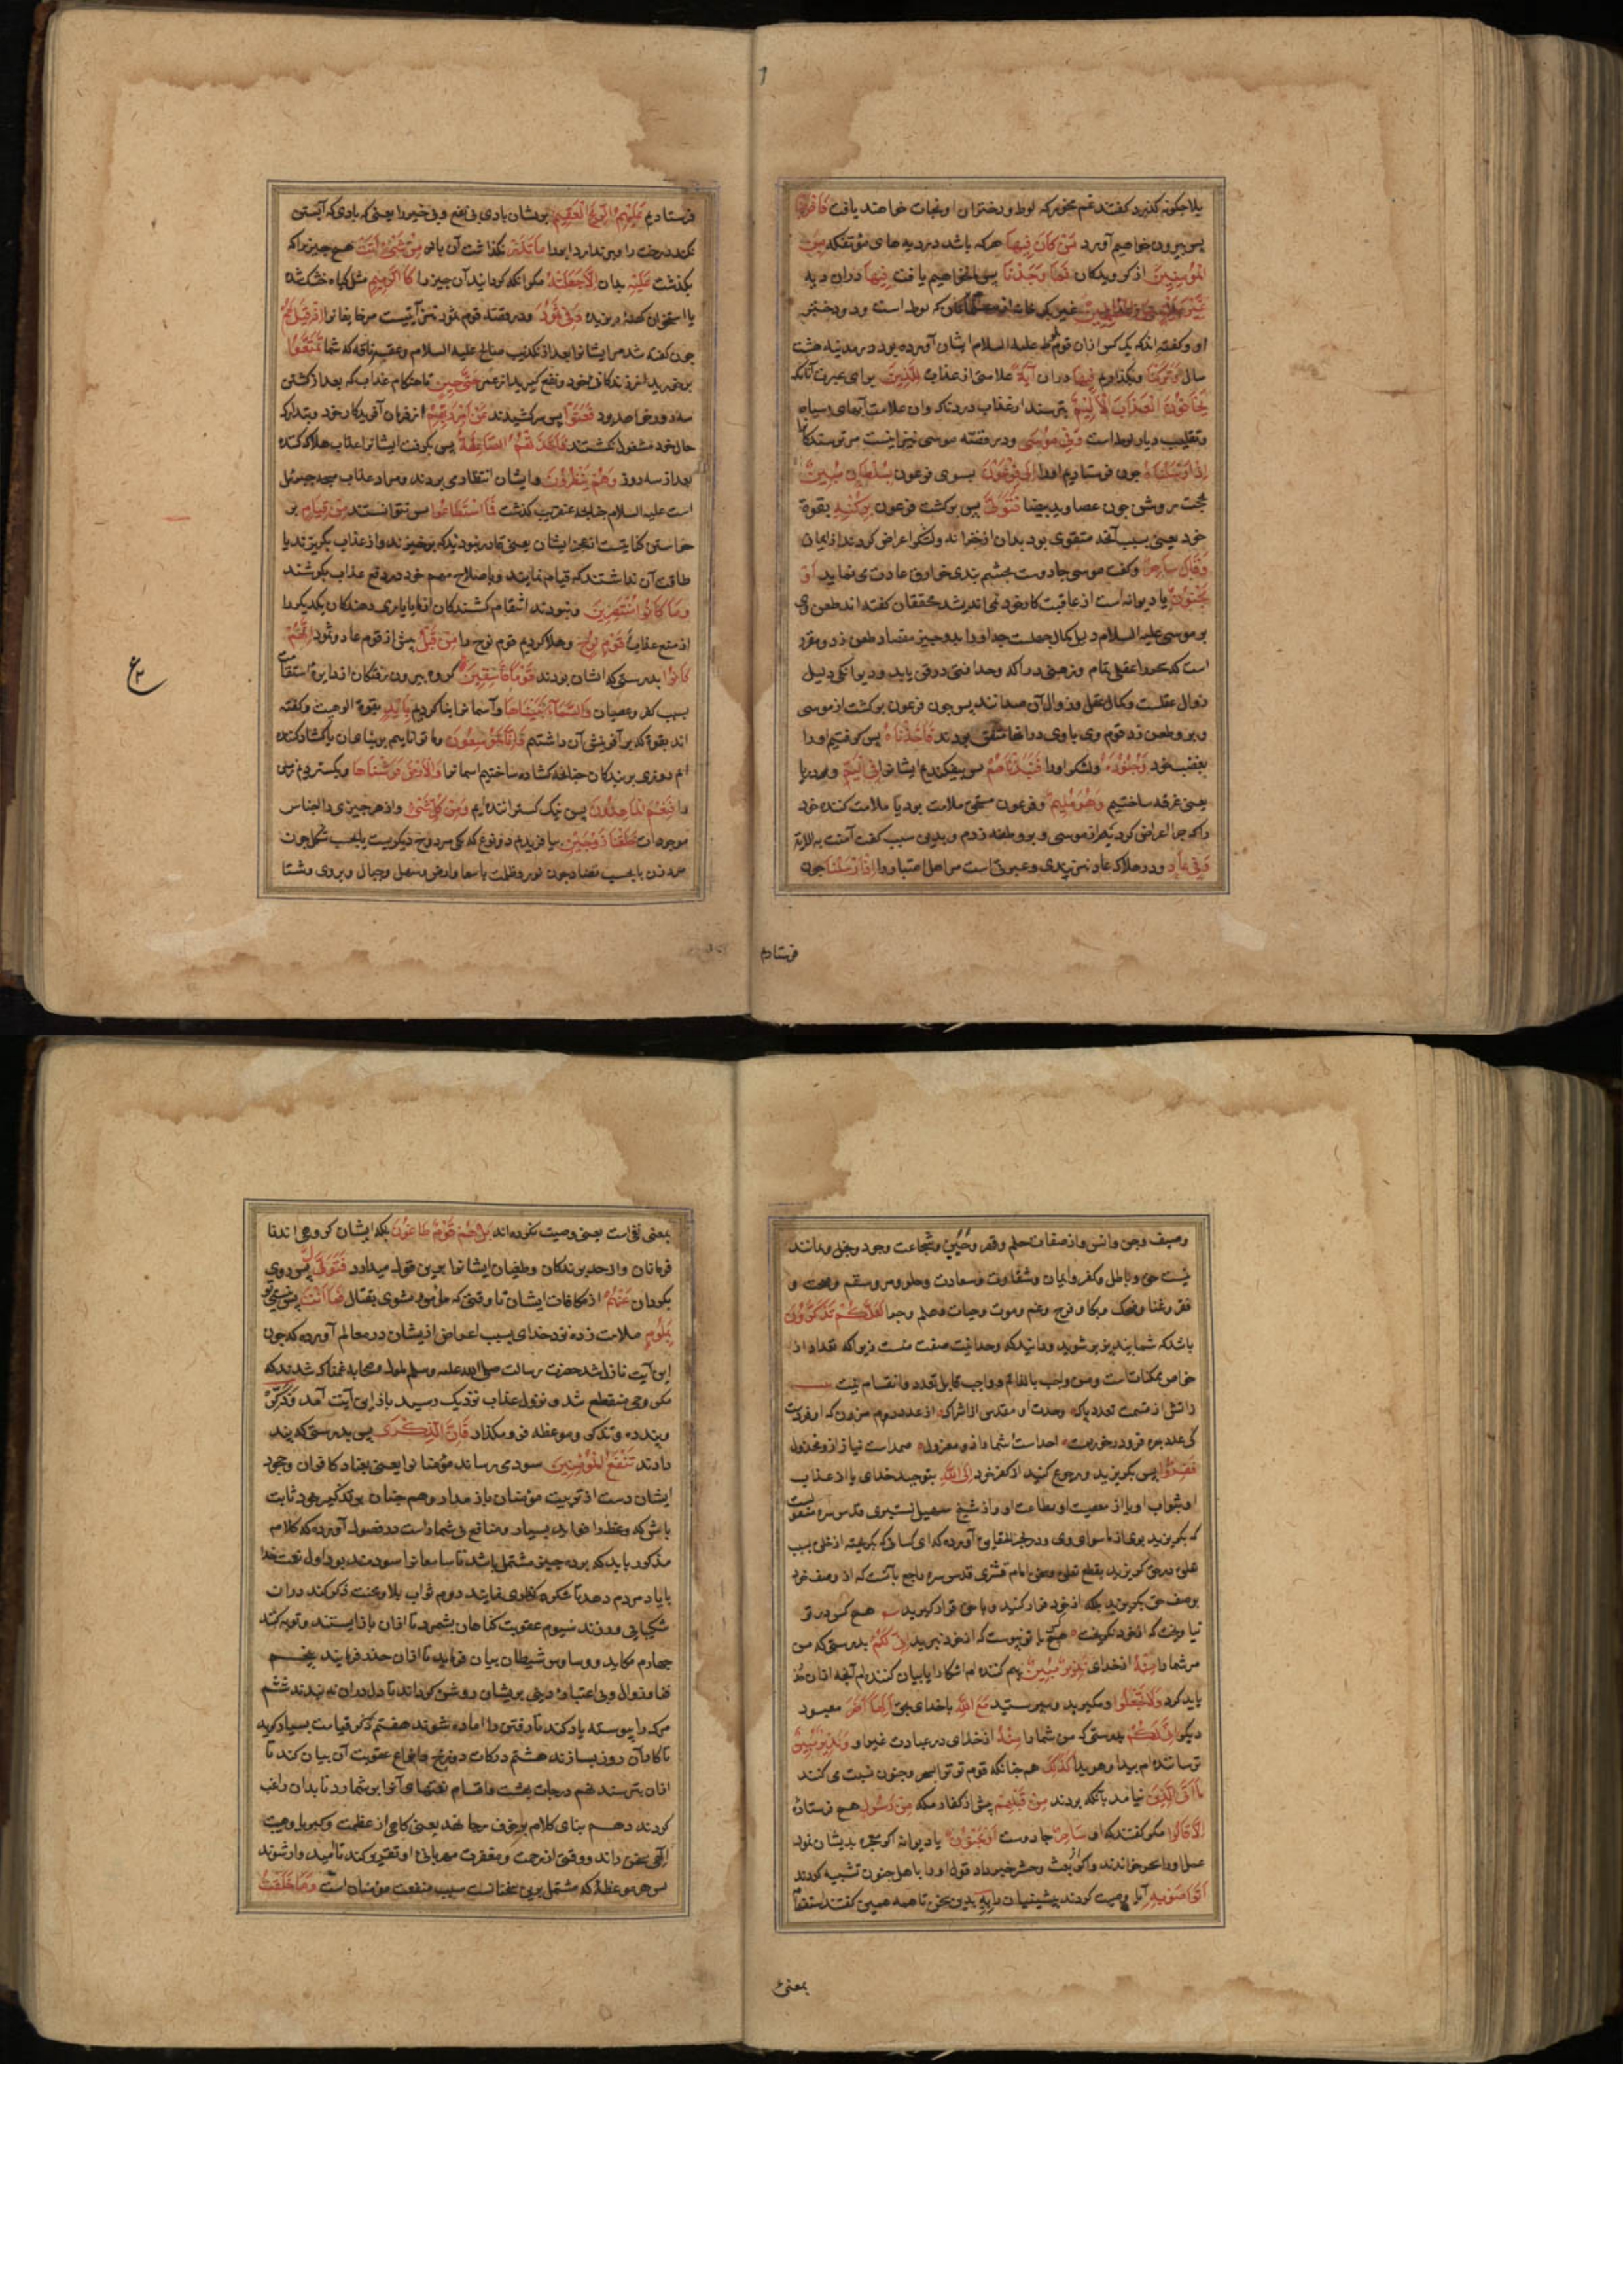 بلا چکونه کذیرد کفتند غم مخور که لوط و دختران او نجات خواهند یافت فَاَخْرَجْنَا
پس بیرون خواهیم آورد مَنْ کَانَ فِیهَا هرکه باشد در دیه های مؤتفکه مِنَ
الْمُؤْمِنِینَ از کرویدکان فَمَا وَجَدْنَا پس نخواهیم یافت فِیهَا دران دیه
غَیْرَ بَیْتٍ مِنَ الْمُسْلِمِینَ غیر یک خانه از که لوط است و دو دختر
او و کفته اند که یک کس ازان قوم لوط علیه السلام ایشان آورده بود در مدینه هشت
سال وَتَرَکْنَا وبکذاریم فِیهَا دران آیَةً علامتی از عذاب لِلَّذِینَ برای عبرت آنانکه
یَخَافُونَ الْعَذَابَ الْاَلِیمَ بترسند از عذاب دردناک وان علامت آبهای سیاه
وتقلیب دیار لوط است وَفِی مُوسَی ودر قصه موسی نیز آیتیست مر ترسندکانرا
اِذْ اَرْسَلْنَاهُ چون فرستادیم اورا اِلَی فِرْعَوْنَ بسوی فرعون بِسُلْطَانٍ مُبِینٍ
بحجت روشن چون عصا وید بیضا فَتَوَلَّی پس برکشت فرعون بِرُکْنِهِ بقوة
خود یعنی بسبب آنچه متقوی بود بدان از خزانه ولشکر اعراض کرد ازایمان
وَقَالَ سَاحِرٌ وکفت موسی جادوست بچشم بندی خوارق عادت می نماید اَوْ
مَجْنُونٌ یا دیوانه است از عاقبت کار خود نمی اندیشد محققان کفته اند طعن وی
بر موسی علیه السلام دلیل کمال جهلست چه اورا بدو چیز متضاد طعن زد و مقرر
است که سحر را عقلی تمام وزهنی دراک وحذاقتی درفن باید ودیوانکی دلیل
زوال عقلست وکمال عقل وزوال آن ضدانند پس چون فرعون برکشت از موسی
وبرو طعن زد قوم وی با وی دران متفق بودند فَاَخَذْنَاهُ پس کرفتیم اورا
بغضب خود وَجُنُودَهُ ولشکر اورا فَنَبَذْنَاهُمْ پس بیفکندیم ایشانرا فِی الْیَمِّ در دریا
یعنی غرقه ساختیم وَهُوَ مُلِیمٌ وفرعون مستحق ملامت بود یا ملامت کننده خود
را که چرا اعراض کردم از موسی وبرو طعنه زدم وبدین سبب کفت آمنت به لااله
وَفِی عَادٍ ودر هلاک عاد نیز پندی وعبرتی است مر اهل اعتبار را اِذْ اَرْسَلْنَا چون
فرستادیم
فرستادیم عَلَیْهِمُ الرِّیحَ الْعَقِیمَ بریشان بادی بی نفع وبی خیر را یعنی که بادی که آبستن
نکند درخت را ومیوه ندارد ابدا مَا تَذَرُ نکذاشت آن باد مِنْ شَیْءٍ اَتَتْ هیچ چیز را که
بکذشت عَلَیْهِ بدان اِلَّا جَعَلَتْهُ مکر آنکه کردانید آن چیز را کَالرَّمِیمِ مثل کیاه خشک شده
یا استخوان کهنه ریزیده وَفِی ثَمُودَ ودر قصه قوم ثمود نیز آیتیست مر خایفانرا اِذْ قِیلَ لَهُمْ
چون کفته شد مر ایشانرا بعد از تکذیب صالح علیه السلام وعقر ناقه که شما تَمَتَّعُوا
برخورید از زندکانی خود ونفع کیرید از عمر حَتَّی حِینٍ تا هنکام عذاب که بعد از کشتن
سه روز خواهد بود فَعَتَوْا پس سرکشیدند عَنْ اَمْرِ رَبِّهِمْ از فرمان آفریدکار خود وبتدارک
حال خود مشغول نکشتند فَاَخَذَتْهُمُ الصَّاعِقَةُ پس بکرفت ایشانرا عذاب هلاک کننده
بعد از سه روز وَهُمْ یَنْظُرُونَ وایشان انتظار می بردند ومراد عذاب صیحه جبرئیل
است علیه السلام چنانچه عنقریب کذشت فَمَا اسْتَطَاعُوا پس نتوانستند مِنْ قِیَامٍ بر
خاستن کنایتست از عجز ایشان یعنی قادر نبودند که برخیزند واز عذاب بکریزند یا
طاقت آن نداشتند که قیام نمایند وباصلاح مهم خود در دفع عذاب بکوشند
وَمَا کَانُوا مُنْتَصِرِینَ ونبودند انتقام کشندکان ازما یا یاری دهندکان یکدیکر را
از منع عذاب وَقَوْمَ نُوحٍ وهلاک کردیم قوم نوح را مِنْ قَبْلُ پیش از قوم عاد وثمود اِنَّهُمْ
کَانُوا بدرستی که ایشان بودند قَوْمًا فَاسِقِینَ کروه بیرون رفتکان از دایره استقامت
بسبب کفر وعصیان وَالسَّمَاءَ بَنَیْنَاهَا وآسمانرا بنا کردیم بِاَیْدٍ بقوة الوهیت وکفته
اند بقوة که بر آفرینش آن داشتیم وَاِنَّا لَمُوسِعُونَ وما تواناییم بر بنای آن یا کشاد کننده
ایم روزی بر بندکان چنانچه کشاده ساختیم اسمانرا وَالْاَرْضَ فَرَشْنَاهَا وبکستردیم زمین
را فَنِعْمَ الْمَاهِدُونَ پس نیک کستراننده ایم وَمِنْ کُلِّ شَیْءٍ واز هر چیزی از اجناس
موجودات خَلَقْنَا زَوْجَیْنِ بیافریدیم دو نوع که یکی مزدوج دیکریست یا بحسب شکل چون
مرد وزن یا بحسب تضاد چون نور وظلمت یا سما وارض وسهل وجبال وبرد وشتا
ع
وصیف وجن وانس واز صفات حلم وقهر وجُبن وشجاعت وجود وبخل ومانند
نیست حق وباطل وکفر وایمان وشقاوت وسعادت وحلو ومر وسقم وصحت و
فقر وغنا وضحک وبکا وفرح وغم وموت وحیات وعلم وجهل لَعَلَّکُمْ تَذَکَّرُونَ
باشد که شما پندپذیر شوید وبدانید که وحدانیت صفت منست زیرا که تعداد از
خواص ممکناتست ومن واجب بالذاتم وواجب قابل تعدد وانقسام نیست
ذاتش از قسمت تعدد پاک وحدت او مقدس از اشراک از عدد دم مزن که او فردست
کی عدد بهره فرد در خوردست احدست شمار ازو معزول صمدست نیاز ازو مخذول
فَفِرُّوا پس بکریزید ورجوع کنید از کفر خود اِلَی اللهِ بتوحید خدای یا از عذاب
او بثواب او یا از معصیت او بطاعت او واز شیخ سهیل تستری قدس سره منقولست
که بکریزید بوی از ماسوای وی ودر بحرالحقایق آورده که ای کسانی که بکریخته از خلق بسبب
خلق در حق کریزید بقطع تعلق وسخن امام قشیری قدس سره راجع بآنست که از وصف خود
بوصف حق بکریزید بلکه از خود فرار کنید وباحق قرار کیرید هیچ کس در تو
نیاویخت که از خود نکریخت هیچ با تو نپیوست که از خود نبرید اِنِّی لَکُمْ بدرستی که من
مر شما را مِنْهُ از خدای نَذِیرٌ مُبِینٌ بیم کننده ام اشکارا یا بیان کننده ام آنچه ازان حذر
باید کرد وَلَا تَجْعَلُوا ومکیرید ومپرستید مَعَ اللهِ باخدای بحق اِلٰهًا اٰخَرَ معبود
دیکر اِنِّی لَکُمْ بدرستی که من شما را مِنْهُ از خدای در عبادت غیر او نَذِیرٌ مُبِینٌ
ترساننده ام پیدا وهویدا کَذٰلِکَ همچنانکه قوم تو ترا بسحر وجنون نسبت می کنند
مَا اَتَی الَّذِینَ نیامد بآنکه بودند مِنْ قَبْلِهِمْ پیش از کفار مکه مِنْ رَسُولٍ هیچ فرستاده
اِلَّا قَالُوا مکر کفتند که او سَاحِرٌ جادوست اَوْ مَجْنُونٌ یا دیوانه اکر معجزه بدیشان نمود
عمل اورا سحر خواندند واکر از بعث وحشر خبر داد قول اورا باهل جنون تشبیه کردند
اَتَوَاصَوْا بِهِ آیا وصیت کردند پیشینیان بِهِ بدین سخن تا همه همین کفتند استفهام
بمعنی
بمعنی نفی است یعنی وصیت نکرده اند بَلْ هُمْ قَوْمٌ طَاغُونَ بلکه ایشان کروهی اند نا
فرمانان واز حد برندکان وطغیان ایشانرا بدین قول میدارد فَتَوَلَّ پس روی
بکردان عَنْهُمْ از مکافات ایشان تا وقتی که مامور شوی بقتال فَمَا اَنْتَ پس نیستی تو
بِمَلُومٍ ملامت زده نزد خدای بسبب اعراض ازیشان در معالم آورده که چون
این آیت نازل شد حضرت رسالت صلی الله علیه وسلم ملول وصحابه غمناک شدند که
مکر وحی منقطع شد ونزول عذاب نزدیک رسید باز این آیت آمد وَذَکِّرْ
وپند ده وتذکیر وموعظه فرو مکذار فَاِنَّ الذِّکْرَی پس بدرستی که پند
دادن تَنْفَعُ الْمُؤْمِنِینَ سود می رساند مؤمنانرا یعنی بعناد کافران وجحود
ایشان دست از تربیت مؤمنان باز مدار وهمچنان بر تذکیر خود ثابت
باش که وعظ را فواید بسیار ومنافع بی شمارست در فصول آورده که کلام
مذکور باید که بر ده چیز مشتمل باشد تا سامعانرا سودمند بود اول نعمت خدا
بایاد مردم دهد تا شکر کزاری نمایند دوم ثواب بلا ومحنت ذکر کند دران
شکیبایی ورزند سیوم عقوبت کناهان بشمرد تا ازان باز ایستند وتوبه کنند
چهارم مکاید ووساوس شیطان بیان فرماید تا ازان حذر فرمایند پنجم
فنا وزوال وبی اعتباری دنیی بریشان روشن کرداند تا دل دران نبندند ششم
مرک را پیوسته یاد کند تا رفتن را آماده شوند هفتم ذکر قیامت بسیار کوید
تا کار آن روز بسازند هشتم درکات دوزخ وانواع عقوبت آن بیان کند تا
ازان بترسند نهم درجات بهشت واقسام نعمتهای آنرا بر شمارد تا بدان راغب
کردند دهم بنای کلام بر خوف ورجا نهد یعنی کاهی از عظمت وکبریا وهیبت
الهی سخن راند ووقتی از رحمت ومغفرت مهربانی او تقریر کند تا امیدوار شوند
پس هر موعظه که مشتمل برین سخنانست سبب منفعت مؤمنان است وَمَا خَلَقْتُ